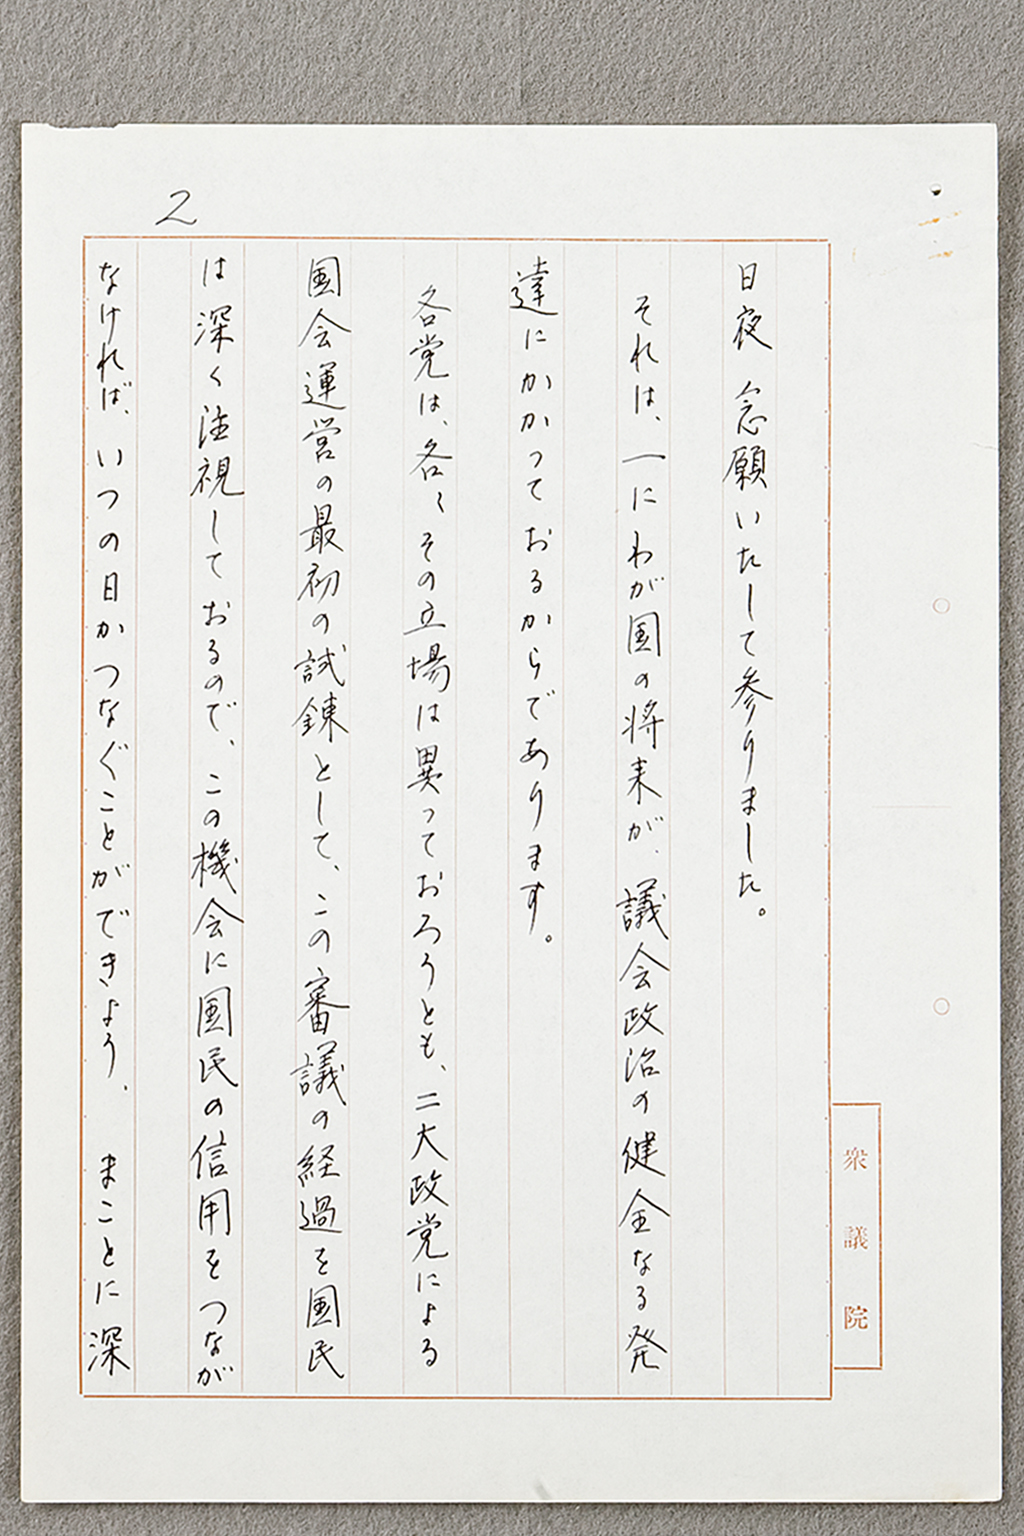 2
日夜念願いたして参りました。
それは、一にわが国の将来が、議会政治の健全なる発
達にかかっておるからであります。
各党は、各〻その立場は異っておろうとも、二大政党による
国会運営の最初の試錬として、この審議の経過を国民
は深く注視しておるので、この機会に国民の信用をつなが
なければ、いつの日かつなぐことができよう、まことに深
衆議院